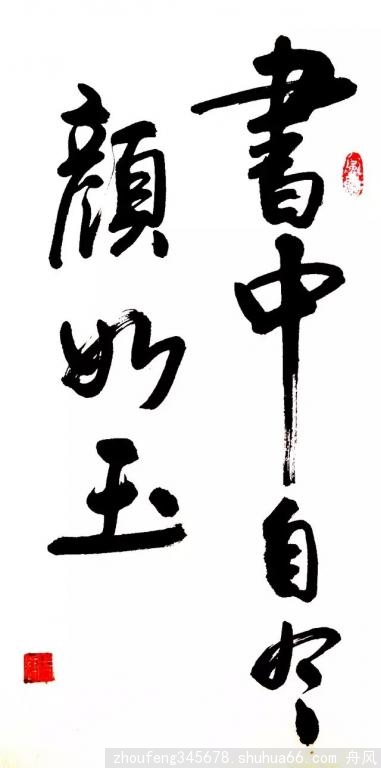 書中自有
顏如玉
zhoufeng345678.shuhua66.com 舟风